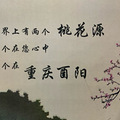 界上有两个 桃花源
个在您心中
个在 重庆酉阳